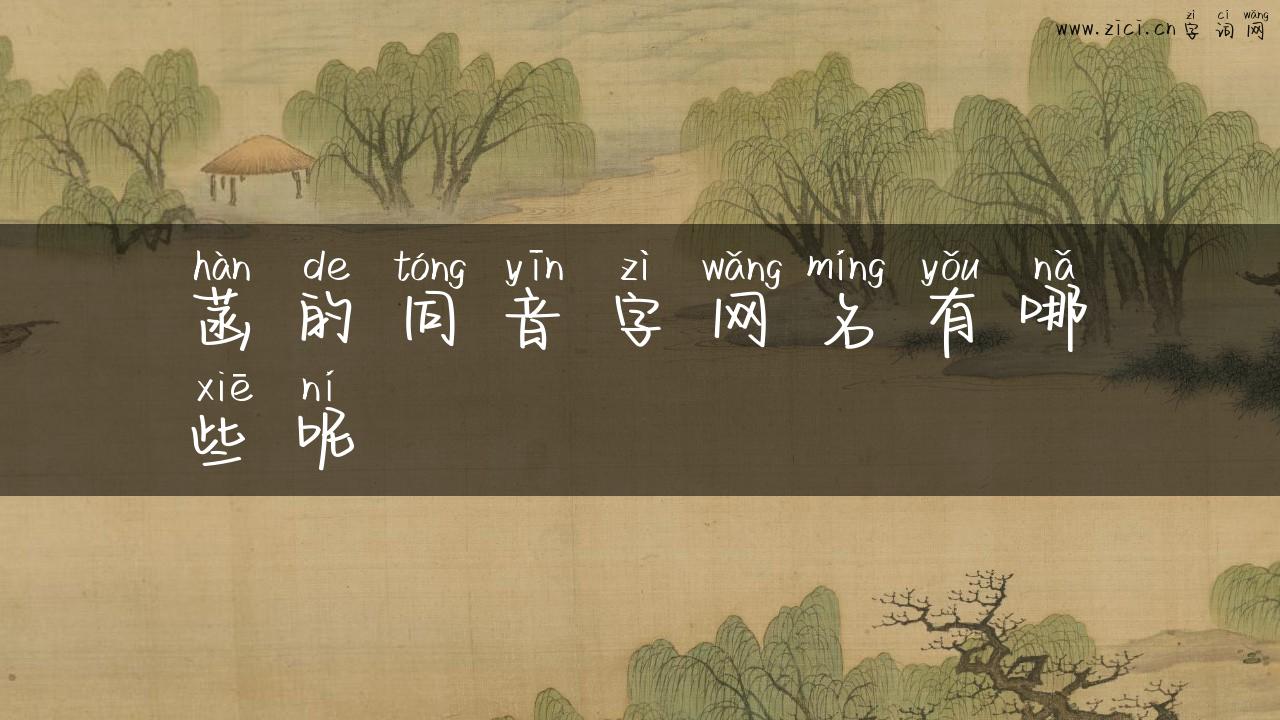 zì cí wǎng
www.zici.cn 字词网
hàn de tóng yīn zì wǎng míng yǒu nǎ
菡的同音字网名有哪
xiē ní
些呢